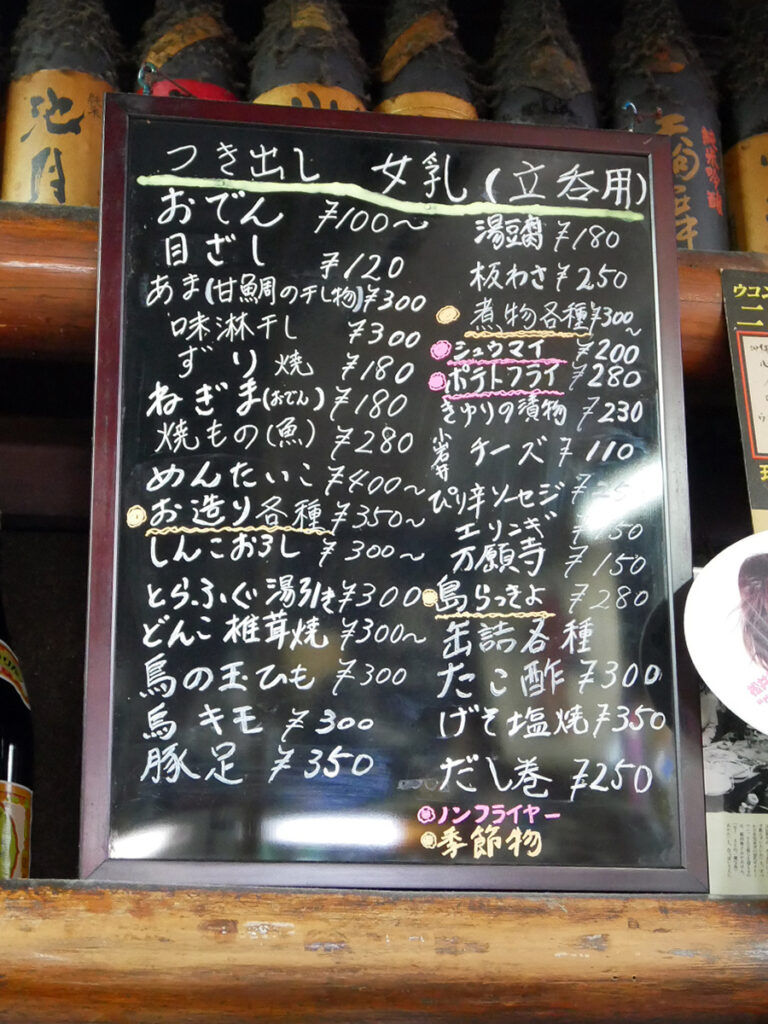 池月
純米
純米吟醸
つき出し 女乳(立呑用)
おでん ¥100〜
目ざし ¥120
あま(甘鯛の干し物)¥300
味淋干し ¥300
ずり焼 ¥180
ねぎま(おでん) ¥180
焼もの(魚) ¥280
めんたいこ ¥400〜
お造り各種 ¥350〜
しんこおろし ¥300〜
とらふぐ湯引き ¥300
どんこ椎茸焼 ¥300〜
鳥の玉ひも ¥300
鳥キモ ¥300
豚足 ¥350
湯豆腐 ¥180
板わさ ¥250
煮物各種 ¥300〜
シュウマイ ¥200
ポテトフライ ¥280
きゆりの漬物 ¥230
小岩井 チーズ ¥110
ぴり辛ソーセジ
エリンギ
万願寺 ¥150
島らっきよ ¥280
缶詰各種
たこ酢 ¥300
げそ塩焼 ¥350
だし巻 ¥250
ノンフライヤー
季節物
ウコン